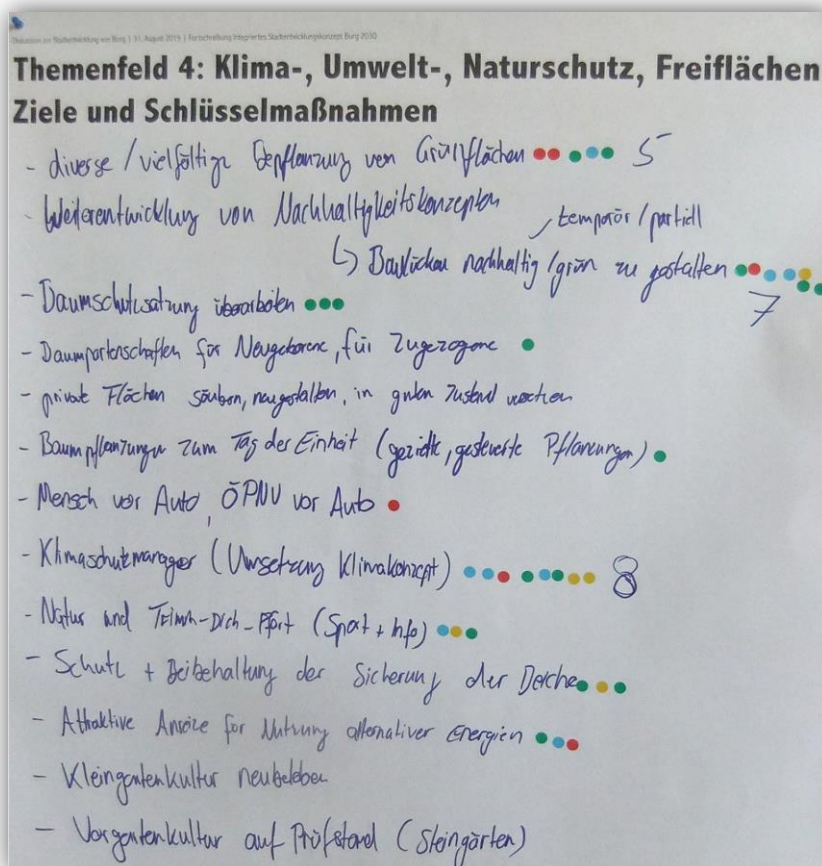 Diskussion zur Stadtentwicklung von Burg | 31. August 2019 | Fortschreibung Integriertes Stadtentwicklungskonzept Burg 2030
Themenfeld 4: Klima-, Umwelt-, Naturschutz, Freiflächen
Ziele und Schlüsselmaßnahmen
- diverse / vielfältige Bepflanzung von Grünflächen 5
- Weiterentwicklung von Nachhaltigkeitskonzepten
temporär / partiell
↳ Baulücken nachhaltig / grün zu gestalten
7
- Baumschutzsatzung überarbeiten
- Baumpartenschaften für Neugeborene, für Zugezogene
- private Flächen säubern, neugestalten, in guten Zustand machen
- Baumpflanzungen zum Tag der Einheit (gezielte, gesteuerte Pflanzungen)
- Mensch vor Auto, ÖPNV vor Auto
- Klimaschutzmanager (Umsetzung Klimakonzept) 8
- Natur und Trimm-Dich-Pfad (Sport + Info)
- Schutz + Beibehaltung der Sicherung der Deiche
- Attraktive Anreize für Nutzung alternativer Energien
- Kleingartenkultur neubeleben
- Vorgartenkultur auf Prüfstand (Steingärten)